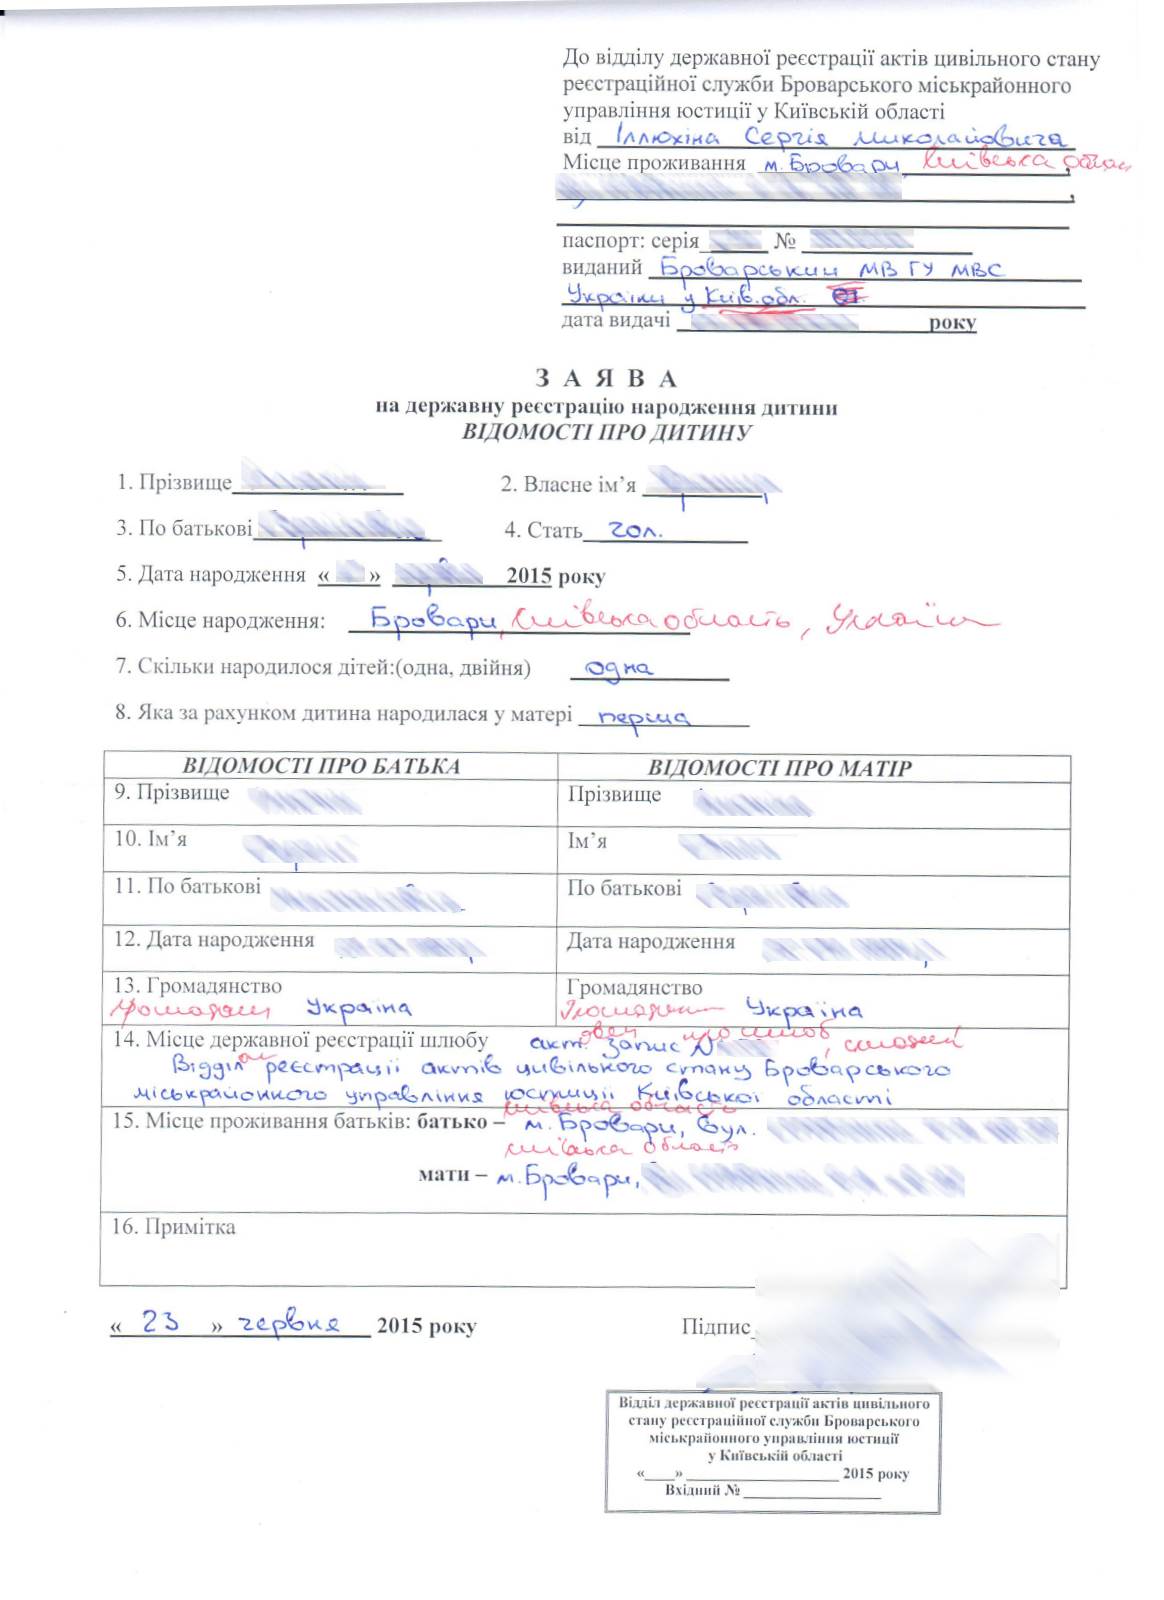 До відділу державної реєстрації актів цивільного стану
реєстраційної служби Броварського міськрайонного
управління юстиції у Київській області
від Іллюхіна Сергія Миколайовича
Місце проживання м. Бровари, Київська облас
,
паспорт: серія №
виданий Броварський МВ ГУ МВС
України у Київ. обл.
дата видачі року
З А Я В А
на державну реєстрацію народження дитини
ВІДОМОСТІ ПРО ДИТИНУ
1. Прізвище 2. Власне ім’я
3. По батькові 4. Стать чол.
5. Дата народження « » 2015 року
6. Місце народження: Бровари, Київська область, Україна
7. Скільки народилося дітей:(одна, двійня) одна
8. Яка за рахунком дитина народилася у матері перша
ВІДОМОСТІ ПРО БАТЬКА ВІДОМОСТІ ПРО МАТІР
9. Прізвище Прізвище
10. Ім’я Ім’я
11. По батькові По батькові
12. Дата народження Дата народження
13. Громадянство Громадянство
Україна Україна
14. Місце державної реєстрації шлюбу акт. запис № про шлюб, складений
Відділом реєстрації актів цивільного стану Броварського
міськрайонного управління юстиції Київської області
Київська область
15. Місце проживання батьків: батько – м. Бровари, вул.
Київська область
мати – м. Бровари,
16. Примітка
« 23 » червня 2015 року Підпис
Відділ державної реєстрації актів цивільного
стану реєстраційної служби Броварського
міськрайонного управління юстиції
у Київській області
«____» ____________________ 2015 року
Вхідний № __________________